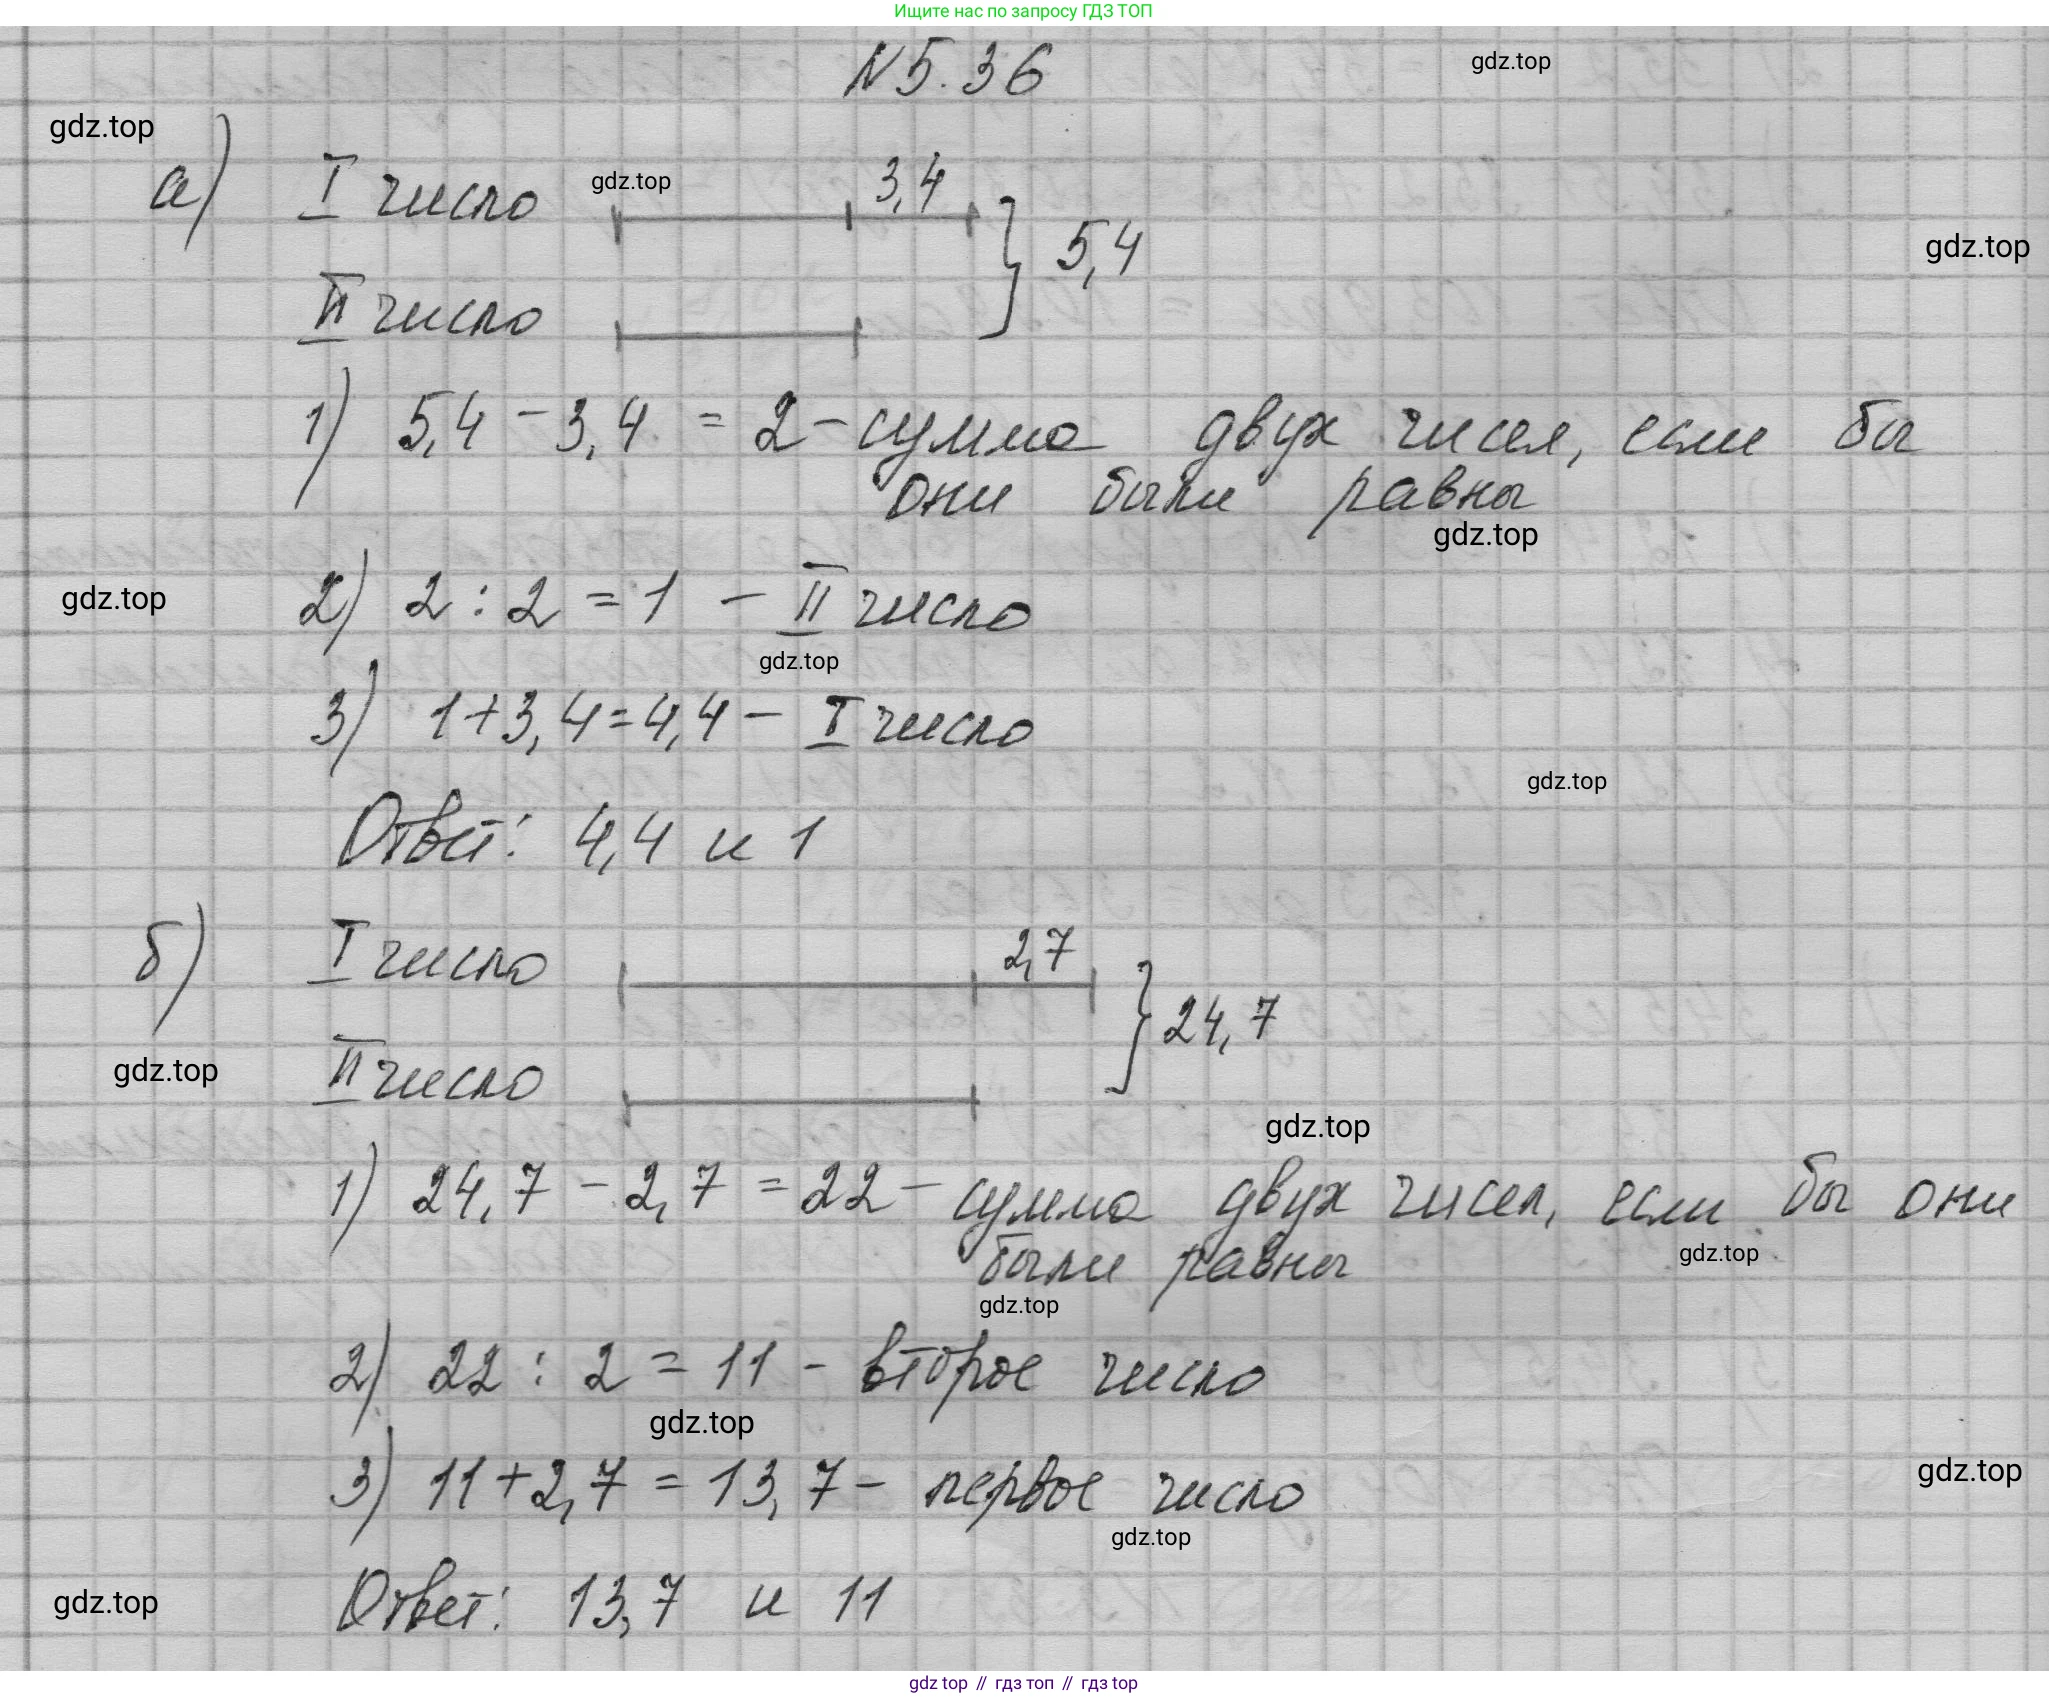 Ищите нас по запросу ГДЗ ТОП
N 5.36
gdz.top
gdz.top
а) I число gdz.top 3,4
5,4
gdz.top
II число
1) 5,4 - 3,4 = 2 - сумма двух чисел, если бы
они были равны
gdz.top
gdz.top
2) 2 : 2 = 1 - II число
gdz.top
3) 1+3,4=4,4 - I число
gdz.top
Ответ: 4,4 и 1
б) I число 2,7
24,7
II число
gdz.top
gdz.top
1) 24,7 - 2,7 = 22 - сумма двух чисел, если бы они
были равны
gdz.top
gdz.top
2) 22 : 2 = 11 - второе число
gdz.top
3) 11+2,7 = 13,7 - первое число
gdz.top
gdz.top
Ответ: 13,7 и 11
gdz.top
gdz top // гдз топ // гдз top